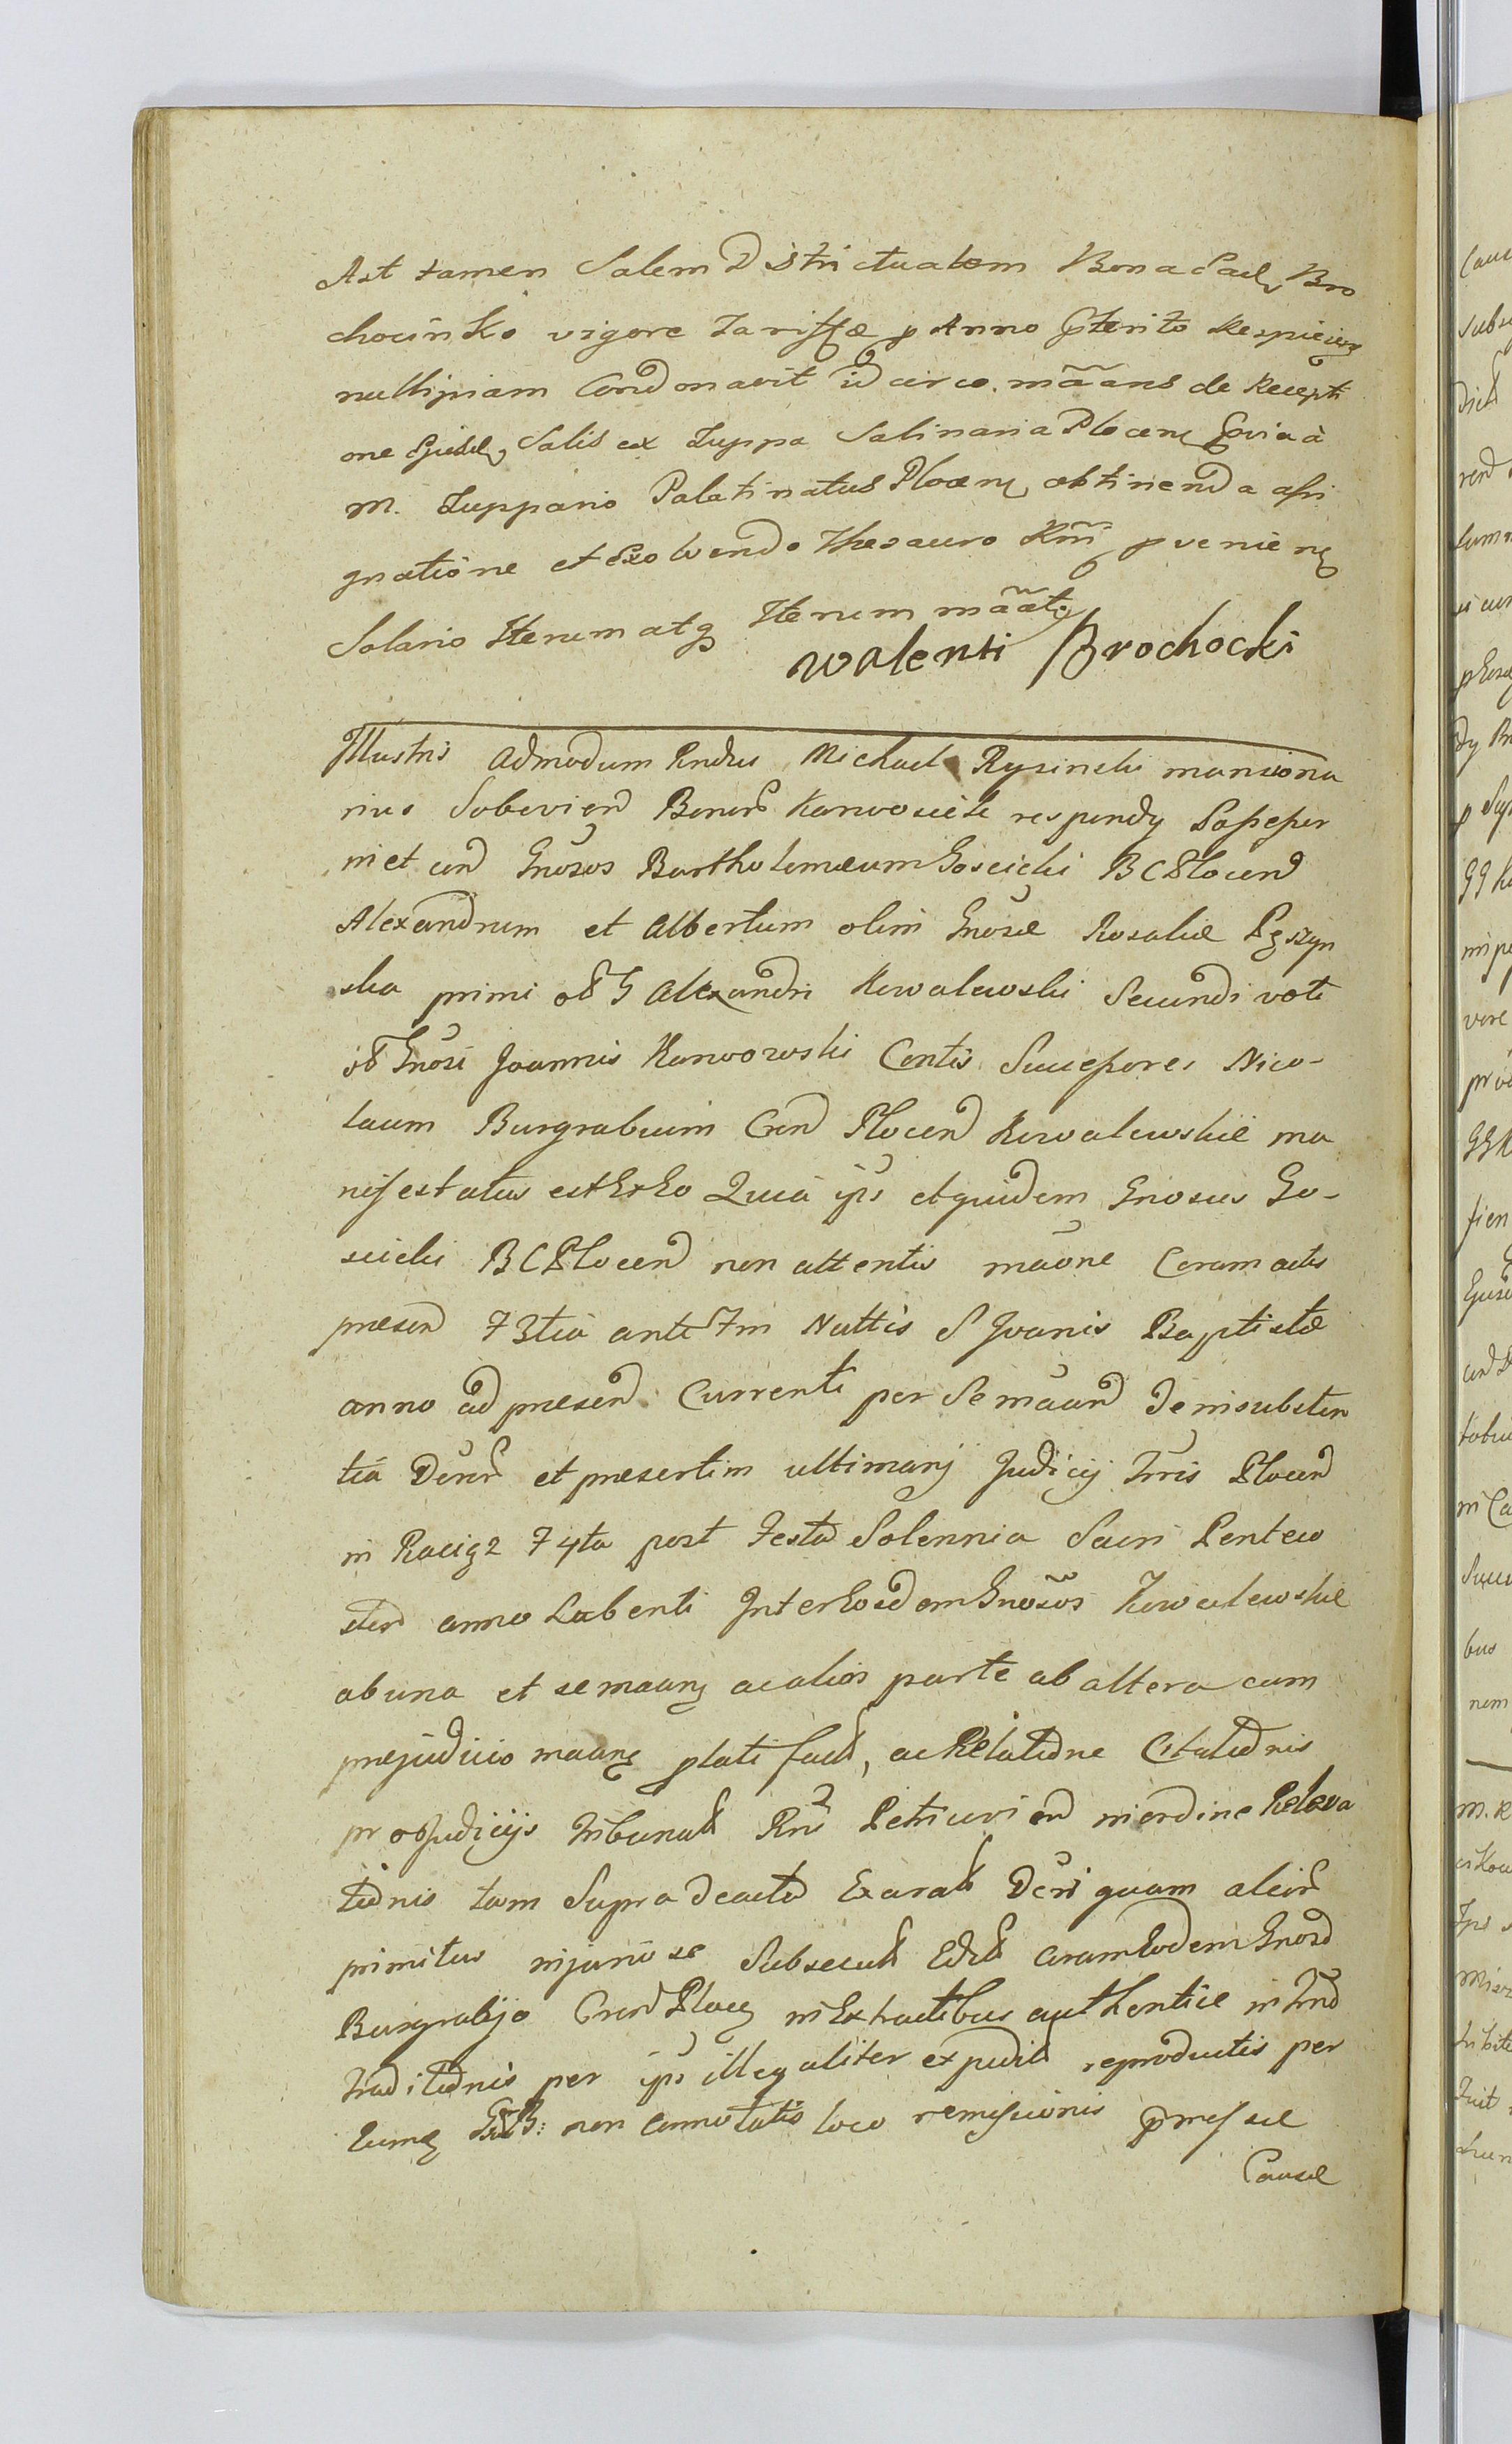 Ast tamen Salem Districtualem Bona Pacl Bro
chocinko vigore Tariffæ p Anno Pterito Respicien
nullipiam Condonavit idcirco mãans de Recepti
one Ejusd Salis ex Zuppa Salinaria Plocen
M. Zuppario Palatinatus Plocen obtinenda assi
gnatione et Exolvendo Thesauro Rni pvenien
Solario Iterum atq Iterum mãats
Walenti Brochocki
Illustris Admodum Rndus Michael Rysinski mansiona
rius Bonor Karwosieki
met cond Gnosos Bartholomæum Gosicki BCPlocen
Alexandrum et Albertum olim Gnosæ Rosaliæ
ska primi olG Alexandri Kowalewski Secundi voti
ol Gnosi Joannis Karwowski Contis Successores Nico-
laum Burgrabium Cren Plocen Kowalewskie ma
nifestatus est Ex Eo Quia ips et quidem Gnosus Go-
sicki BCPlocen non attentis maone Coram actis
presen F 3tia ante Ftm Nattis S Joanis Baptistæ
anno ad presen Currenti per Se maan de insubsten
tia Dcrer et presertim ultimarj Judicij Trris Plocen
in Raciąz F 4ta post Festa Solennia Sacri Penteco
sten anno Labenti Inter Eosdem Gnosos Kowalewskie
ab una et se maans ac alios parte ab altera cum
prejudicio maans plati fact, ac Relatione Citationis
pro Judicijs Tribunal Rni Petricovien in ordine Releva
tionis tam Supra de actu Exarat Dcrti quam alior
primitus injuriose Subsecut Edit coram Eodem Gnoso
Burgrabijo Cren Plocen in Extractibus authentice in
traditionis per ips illegaliter expedit reproductis per
Eumq non connotatis loco remissionis pmissæ
Causæ